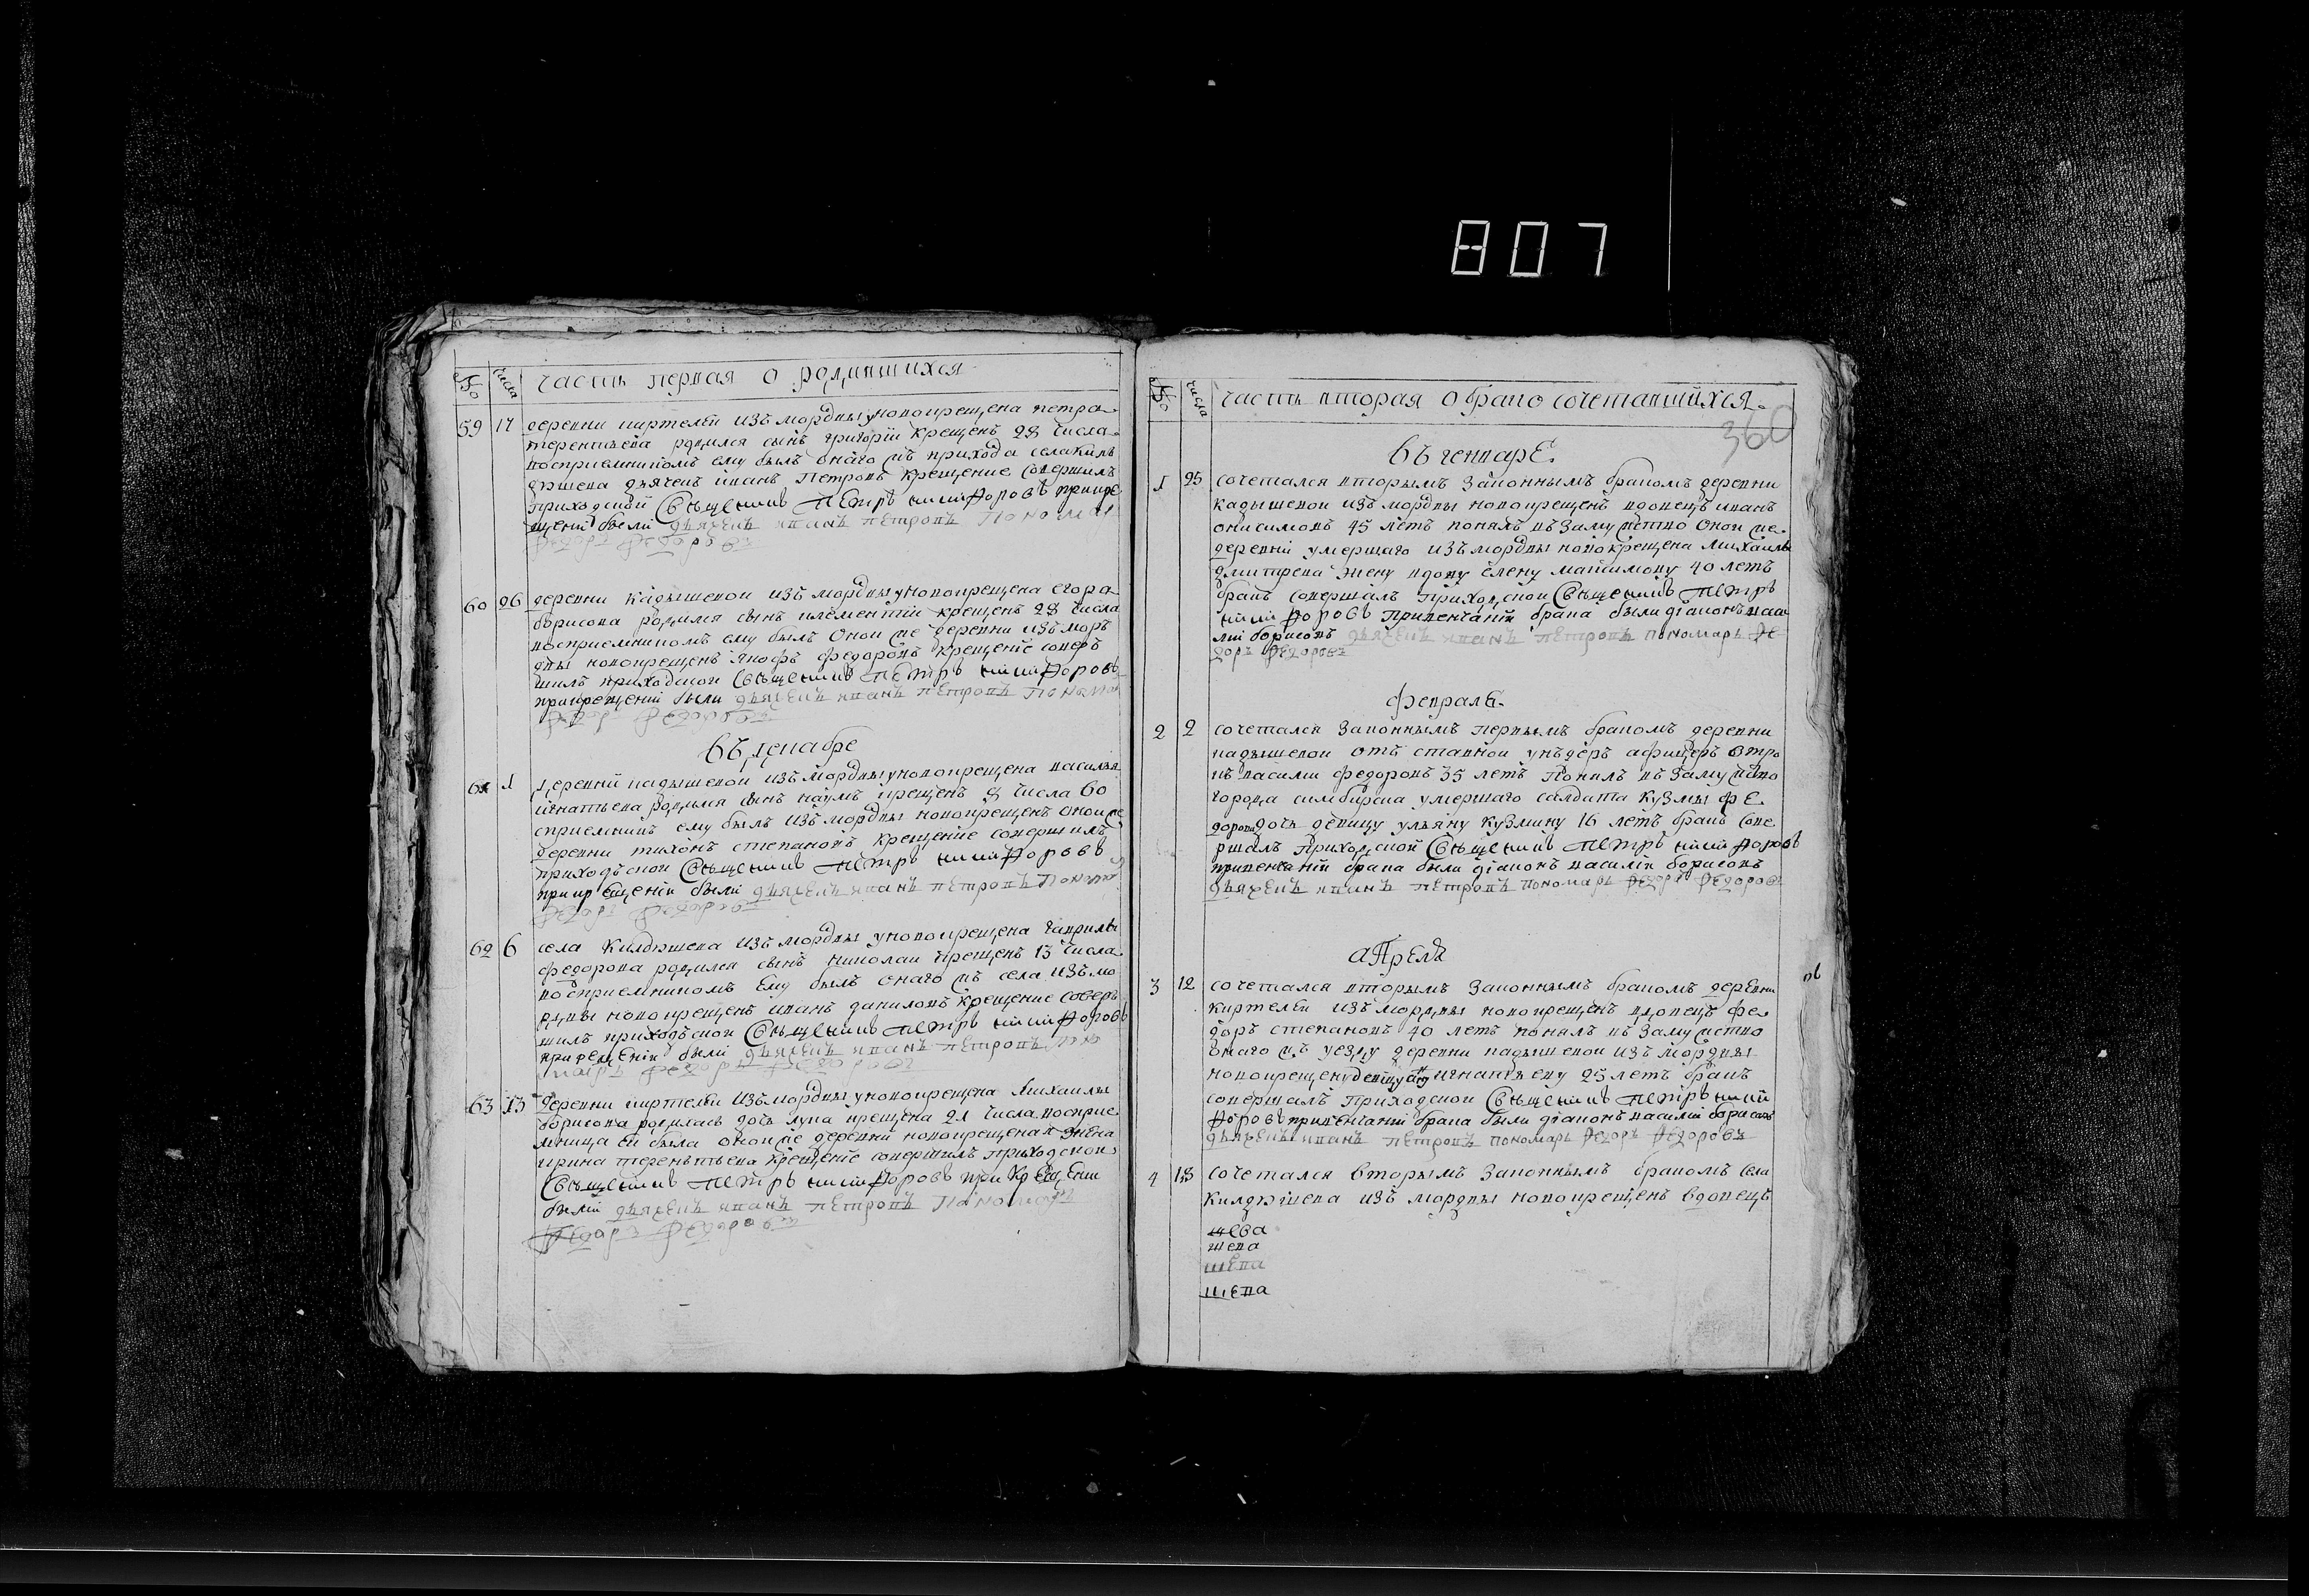 807
№ числа часть первая о родившихся
59 17 деревни киртелей изъ мордвы у новокрещена петра
терентьева родился сынъ григорiи крещенъ 28 числа
восприемникомъ ему былъ онаго жъ прихода села кил
дюшева дьячекъ иванъ Петровъ крещение совершилъ
приходской Священникъ Петръ Никифоровъ при кре
щенiи были дьячекъ иванъ петровъ Пономарь
Федоръ Федоровъ
60 26 деревни кадышевой изъ мордвы у новокрещена егора
борисова родился сынъ клементiи крещенъ 28 числа
восприемникомъ ему былъ оной же деревни изъ моръ
двы новокрещенъ яковъ федоровъ крещенiе совер
шилъ приходской Священникъ Петръ Никифоровъ
при крещенiи были дьячекъ иванъ петровъ Понома
Федоръ Федоровъ
въ декабре
61 1 деревни кадышевой изъ мордвы у новокрещена василья
игнатьева родился сынъ наумъ крещенъ 8 числа во
сприемникъ ему былъ изъ мордвы новокрещенъ оной же
деревни тихонъ степановъ крещенiе совершилъ
приходъской Священникъ Петръ Никифоровъ
при крещенiи были дьячекъ иванъ петровъ Поном
Федоръ Федоровъ
62 6 села Килдюшева изъ мордвы у новокрещена гаврилы
федорова родился сынъ николаи крещенъ 13 числа
восприемникомъ ему былъ онаго жъ села изъ мо
рдвы новокрещенъ иванъ даниловъ крещение совер
шилъ приходъской Священникъ Петръ Никифоровъ
при крещенiи были дьячекъ иванъ петровъ Поно
марь Федоръ Федоровъ
63 13 деревни киртелей изъ мордвы у новокрещена Михаилы
борисова родилась дочь крещена 21 числа восприе
мница ей была оной же деревни новокрещена жена
ирина терентьева крещенiе совершилъ приходской
Священникъ Петръ Никифоровъ при крещенiи
были дьячекъ иванъ петровъ Пономарь
Федоръ Федоровъ
№ числа часть вторая о бракосочетавшихся
360
въ генваре
1 25 сочетался вторымъ законнымъ бракомъ деревни
кадышевой изъ мордвы новокрещенъ вдовецъ иванъ
онисимовъ 45 летъ понялъ въ замужство оной же
деревнi умершаго изъ мордвы новокрещена Михаилы
дмитрева жену вдову елену максимову 40 летъ
бракъ совершалъ приходской Священникъ Петръ
Никифоровъ при венчанiи брака были дiаконъ васи
лiи борисовъ дьячекъ иванъ петровъ пономарь Фе
доръ Федоровъ
феврале
2 2 сочетался законнымъ первымъ бракомъ деревни
кадышевой отъ ставной унъдеръ афицеръ
василии федоровъ 35 летъ понялъ въ замужство
города симбирска умершаго салдата кузмы фе
дорова дочь девицу ульяну кузмину 16 летъ бракъ сове
ршалъ приходской Священникъ Петръ Никифоровъ
при венчанiи брака были дiаконъ василiи борисовъ
дьячекъ иванъ петровъ пономарь Федоръ Федоровъ
апреля
3 12 сочетался вторымъ законнымъ бракомъ деревни
киртелей изъ мордвы новокрещенъ вдовецъ фе
доръ степановъ 40 летъ понялъ въ замужство
онаго жъ уезду деревни кадышевой изъ мордвы
новокрещену девицу игнатьеву 25 летъ бракъ
совершалъ приходской Священникъ Петръ Ники
форовъ при венчанiи брака были дiаконъ василiй борисовъ
дьячекъ иванъ петровъ пономарь Федоръ Федоровъ
4 18 сочетался вторымъ законнымъ бракомъ села
килдюшева изъ мордвы новокрещенъ вдовецъ
шева
шева
шева
шева